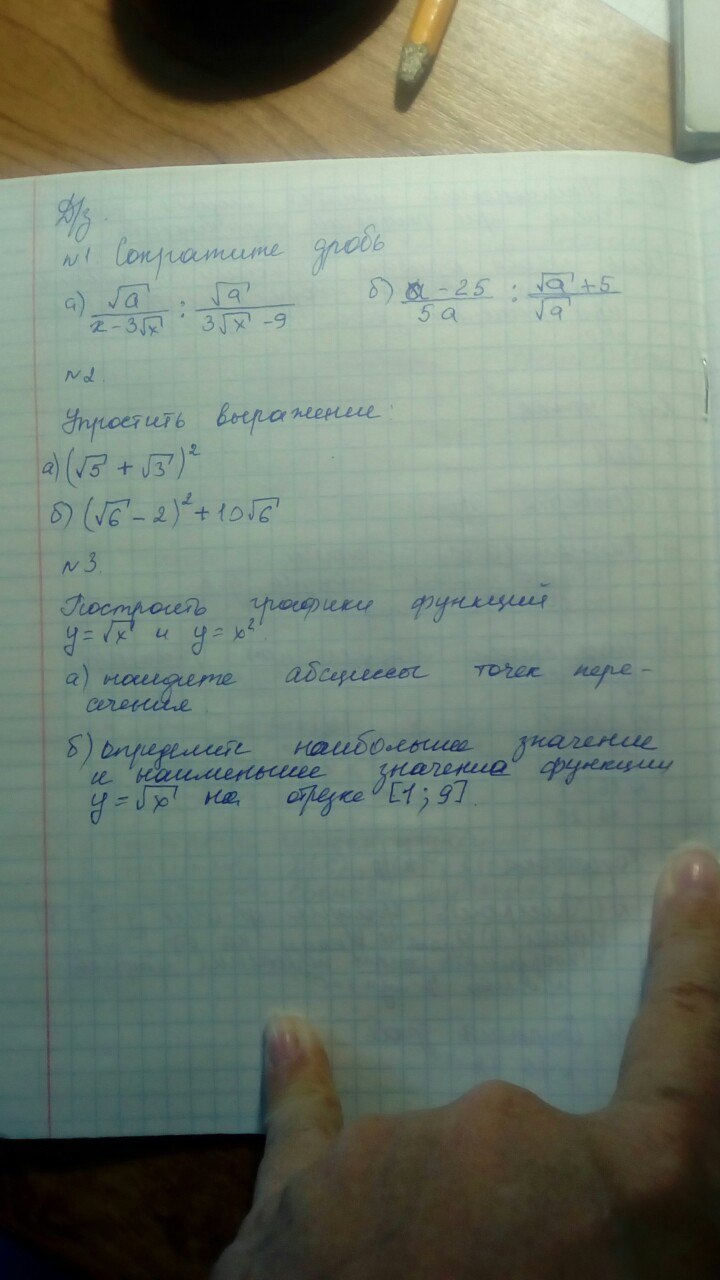 Д/з.
№1 Сократите дробь
а) √a / (x - 3√x) : √a / (3√x - 9) б) (a - 25) / 5a : (√a + 5) / √a
№2.
Упростить выражение:
а) (√5 + √3)²
б) (√6 - 2)² + 10√6
№3.
Построить графики функций
y = √x и y = x².
а) найдите абсциссы точек пере-
сечения.
б) определите наибольшее значение
и наименьшее значение функции
y = √x на отрезке [1; 9].